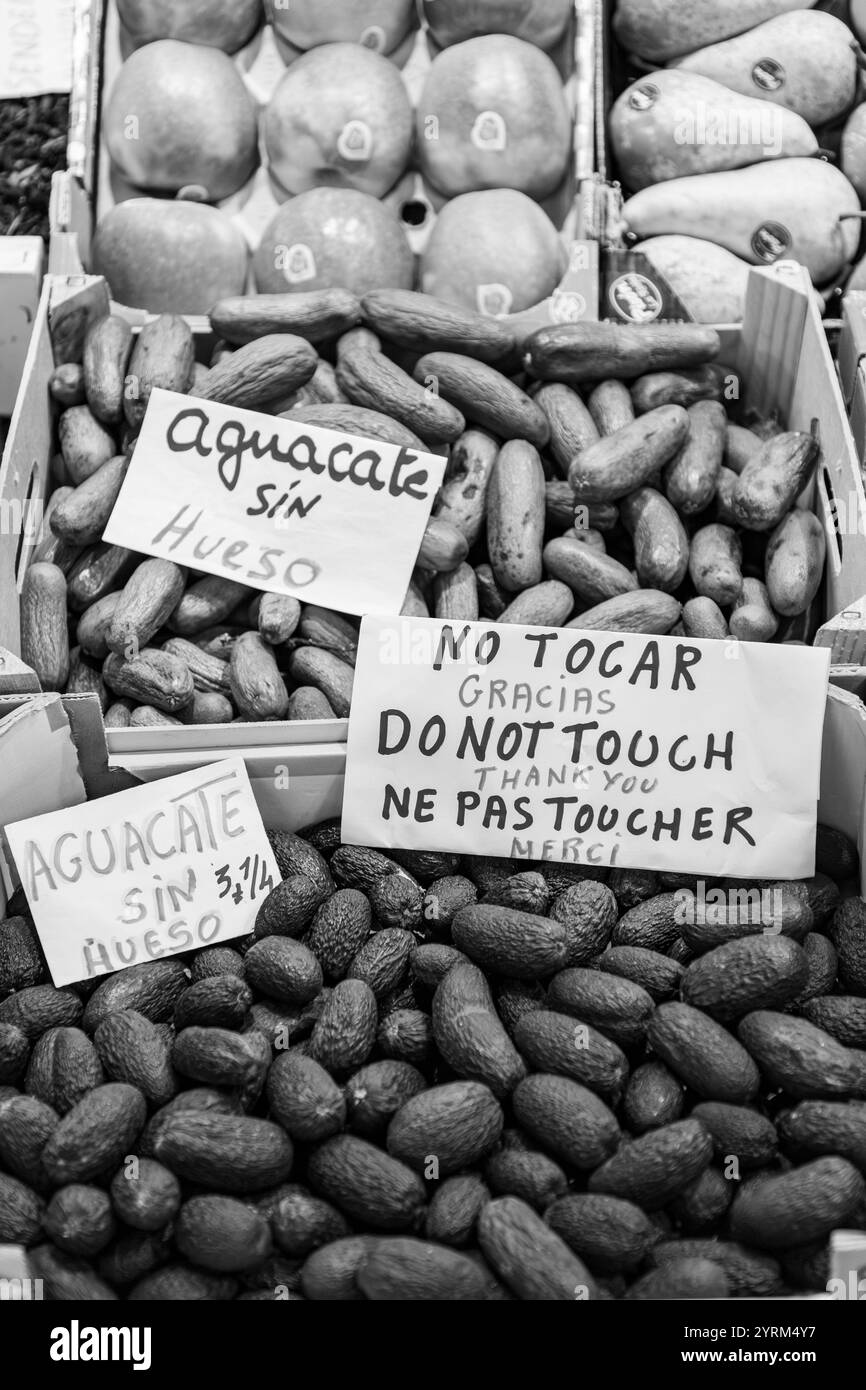 SENDE
Aguacate
SÍN
Hueso
NO TOCAR
GRACIAS
DO NOT TOUCH
THANK YOU
NE PAS TOUCHER
MERCI
AGUACATE
SIN
HUESO
alamy
alamy
Image ID: 2YRM4Y7
www.alamy.com